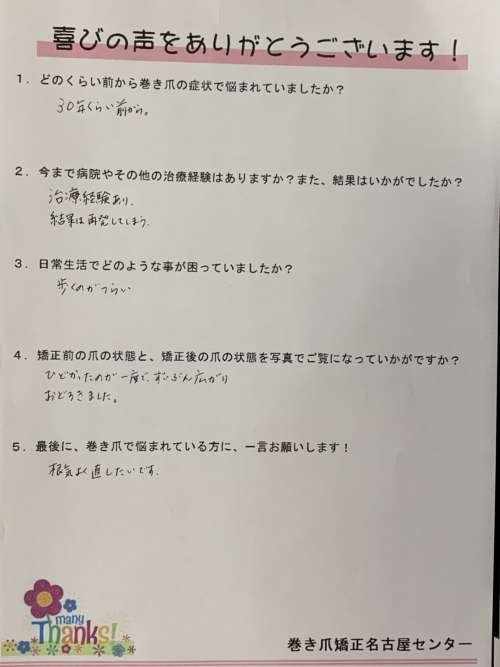 喜びの声をありがとうございます！
１．どのくらい前から巻き爪の症状で悩まれていましたか？
30年くらい前から。
２．今まで病院やその他の治療経験はありますか？また、結果はいかがでしたか？
治療経験あり、
結果は再発してしまう。
３．日常生活でどのような事が困っていましたか？
歩くのがつらい
４．矯正前の爪の状態と、矯正後の爪の状態を写真でご覧になっていかがですか？
ひどかったのが一度で、ずいぶん広がり
おどろきました。
５．最後に、巻き爪で悩まれている方に、一言お願いします！
根気よく直したいです。
many
Thanks!
巻き爪矯正名古屋センター